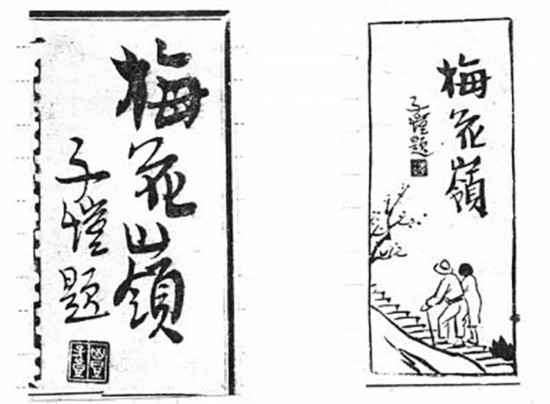 梅花嶺
子愷題
梅花嶺
子愷題